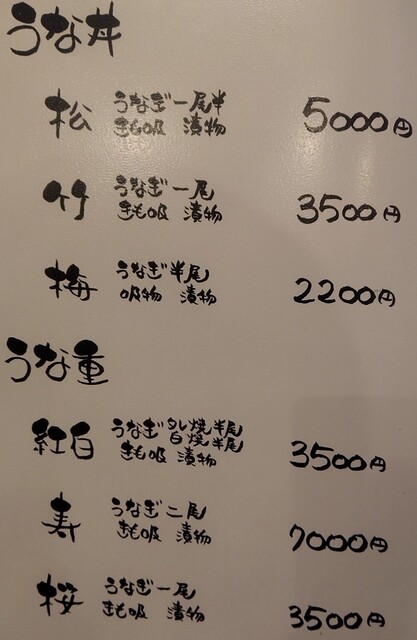 うな丼
松 うなぎ一尾半 5000円
きも吸 漬物
竹 うなぎ一尾 3500円
きも吸 漬物
梅 うなぎ半尾 2200円
吸物 漬物
うな重
紅白 うなぎ タレ焼半尾 3500円
白焼半尾
きも吸 漬物
寿 うなぎ二尾 7000円
きも吸 漬物
桜 うなぎ一尾 3500円
きも吸 漬物